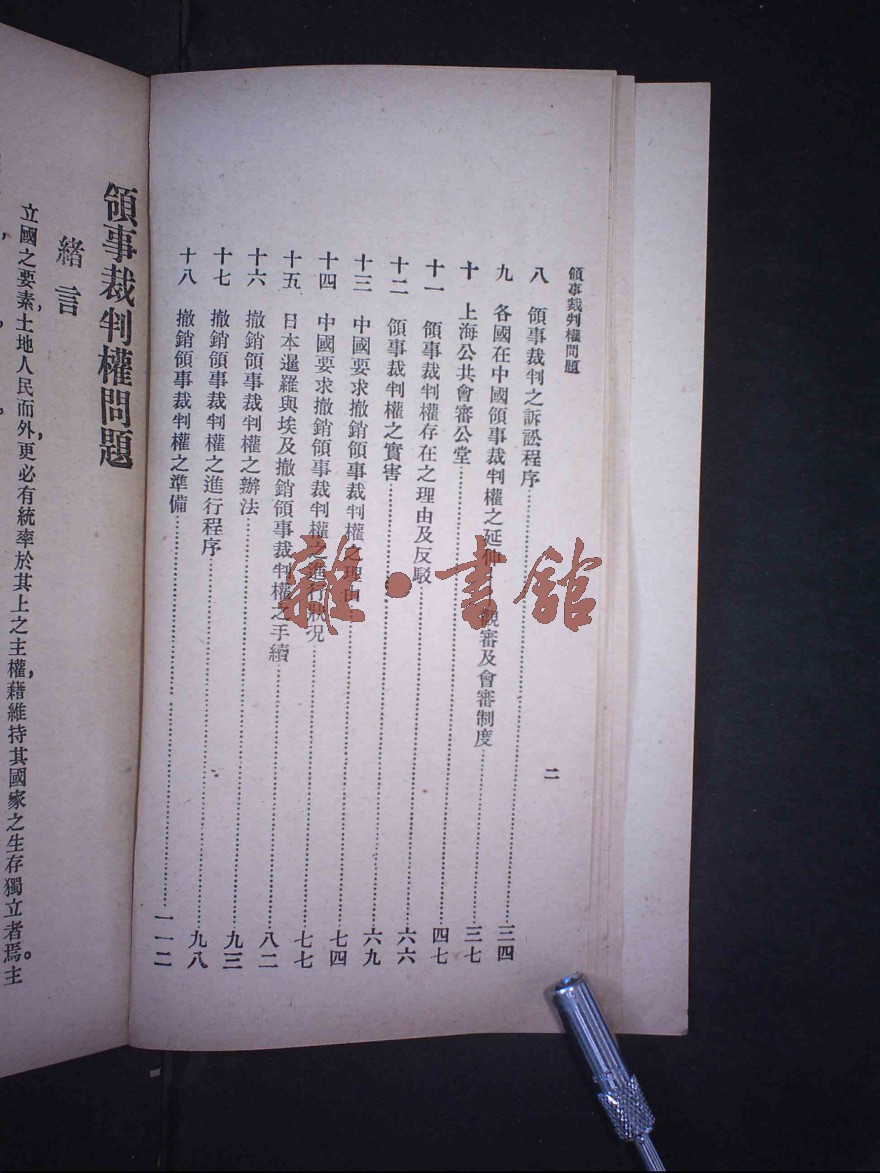 領事裁判權問題
二
八 領事裁判之訴訟程序……三四
九 各國在中國領事裁判權之延伸 觀審及會審制度……三七
十 上海公共會審公堂……四七
十一 領事裁判權存在之理由及反駁……六六
十二 領事裁判權之實害……六九
十三 中國要求撤銷領事裁判權之理由……七四
十四 中國要求撤銷領事裁判權之進行狀況……七七
十五 日本暹羅與埃及撤銷領事裁判權之手續……八二
十六 撤銷領事裁判權之辦法……九三
十七 撤銷領事裁判權之進行程序……九八
十八 撤銷領事裁判權之準備……一一二
領事裁判權問題
緒言
立國之要素,土地人民而外,更必有統率於其上之主權,藉維持其國家之生存獨立者焉。主
雜·書館